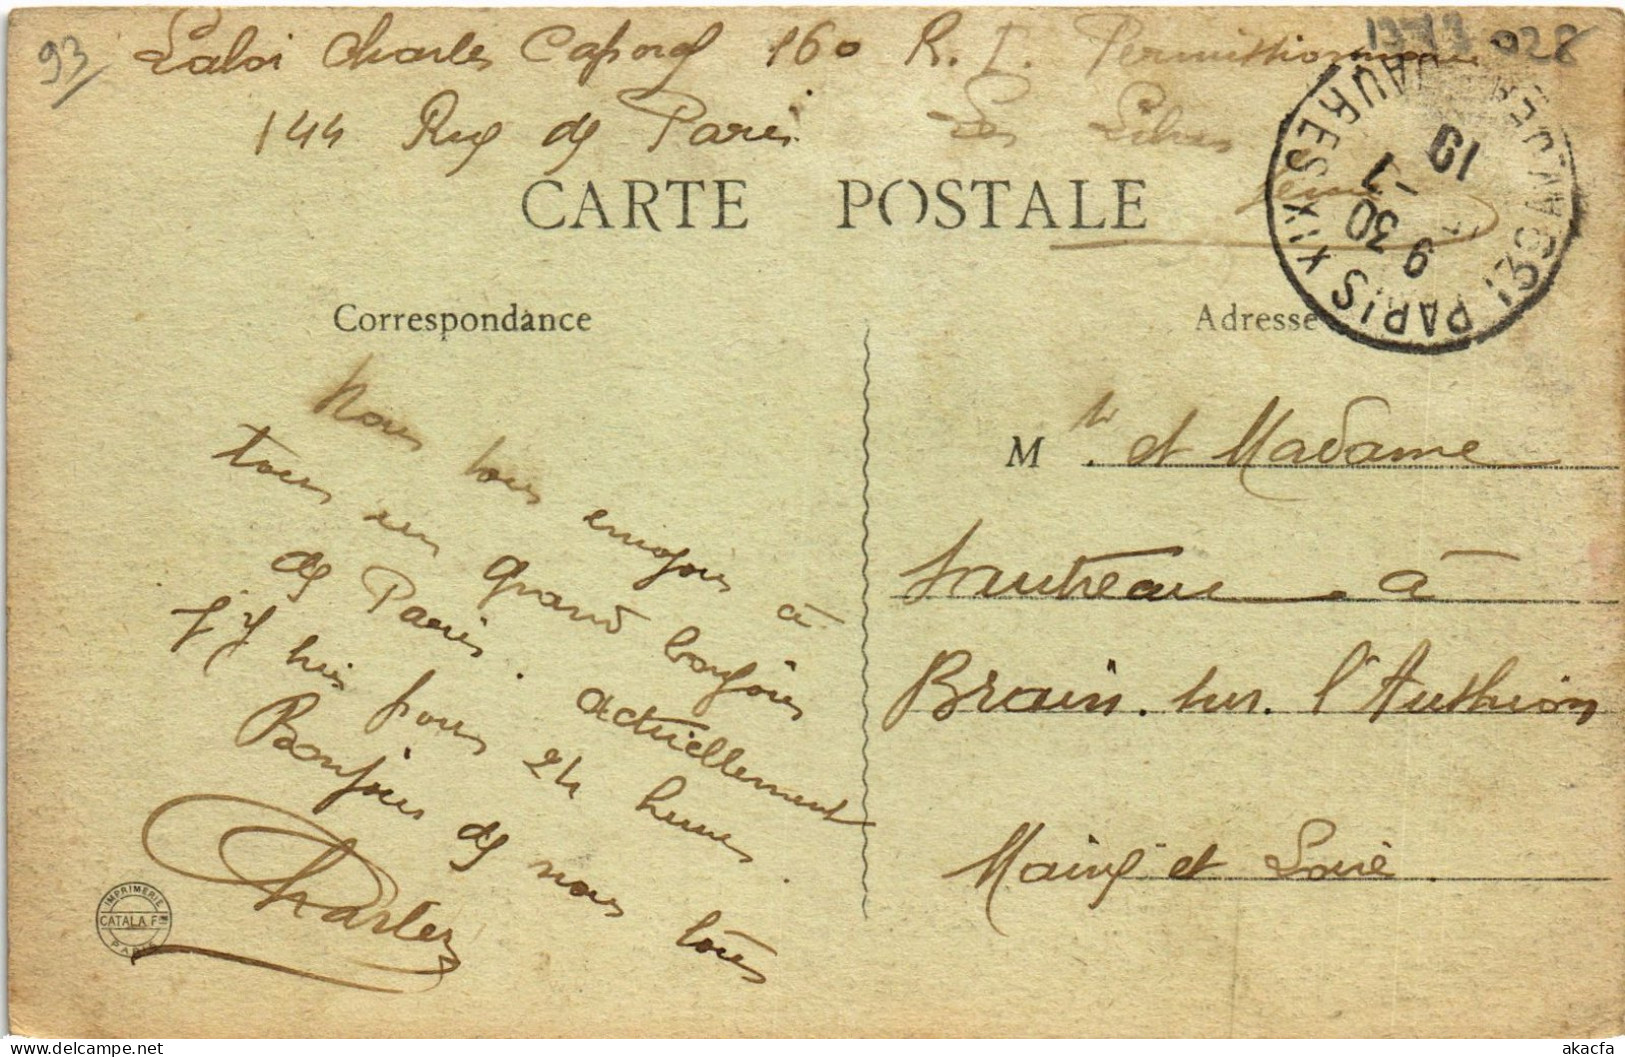 93
1373 028
Laloi Charles Caporal 160 R. I. Permissionnaire
144 Rue de Paris Les Lilas
Seine
CARTE POSTALE
PARIS XIX
139 AV. JEAN JAURES
9 30
-1
19
Correspondance
Adresse
Nous tous envoyons à
tous un grand bonjour
de Paris. actuellement
j'y suis pour 24 heures.
Bonjour de nous tous
Charles
Mr. et Madame
Sautreau à
Brain. sur. l'Authion
Maine et Loire.
IMPRIMERIE
CATALA Fres
PARIS
akacfa